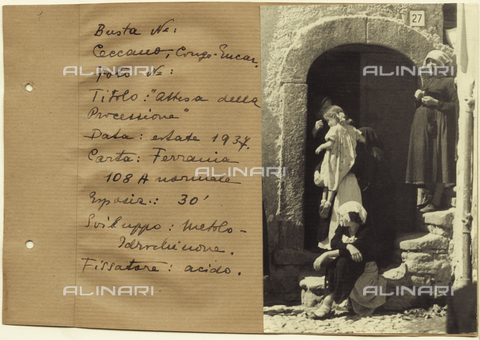 Busta No:
Ceccano,
Foto No:
Titolo: "Attesa della
Processione"
Data: estate 1937.
Carta: Ferrania
108 A normale
Esposiz.: 30'
Sviluppo: metolo-
Idrochinone.
Fissatore: acido.
27
ALINARI
ALINARI
ALINARI
ALINARI
ALINARI
ALINARI